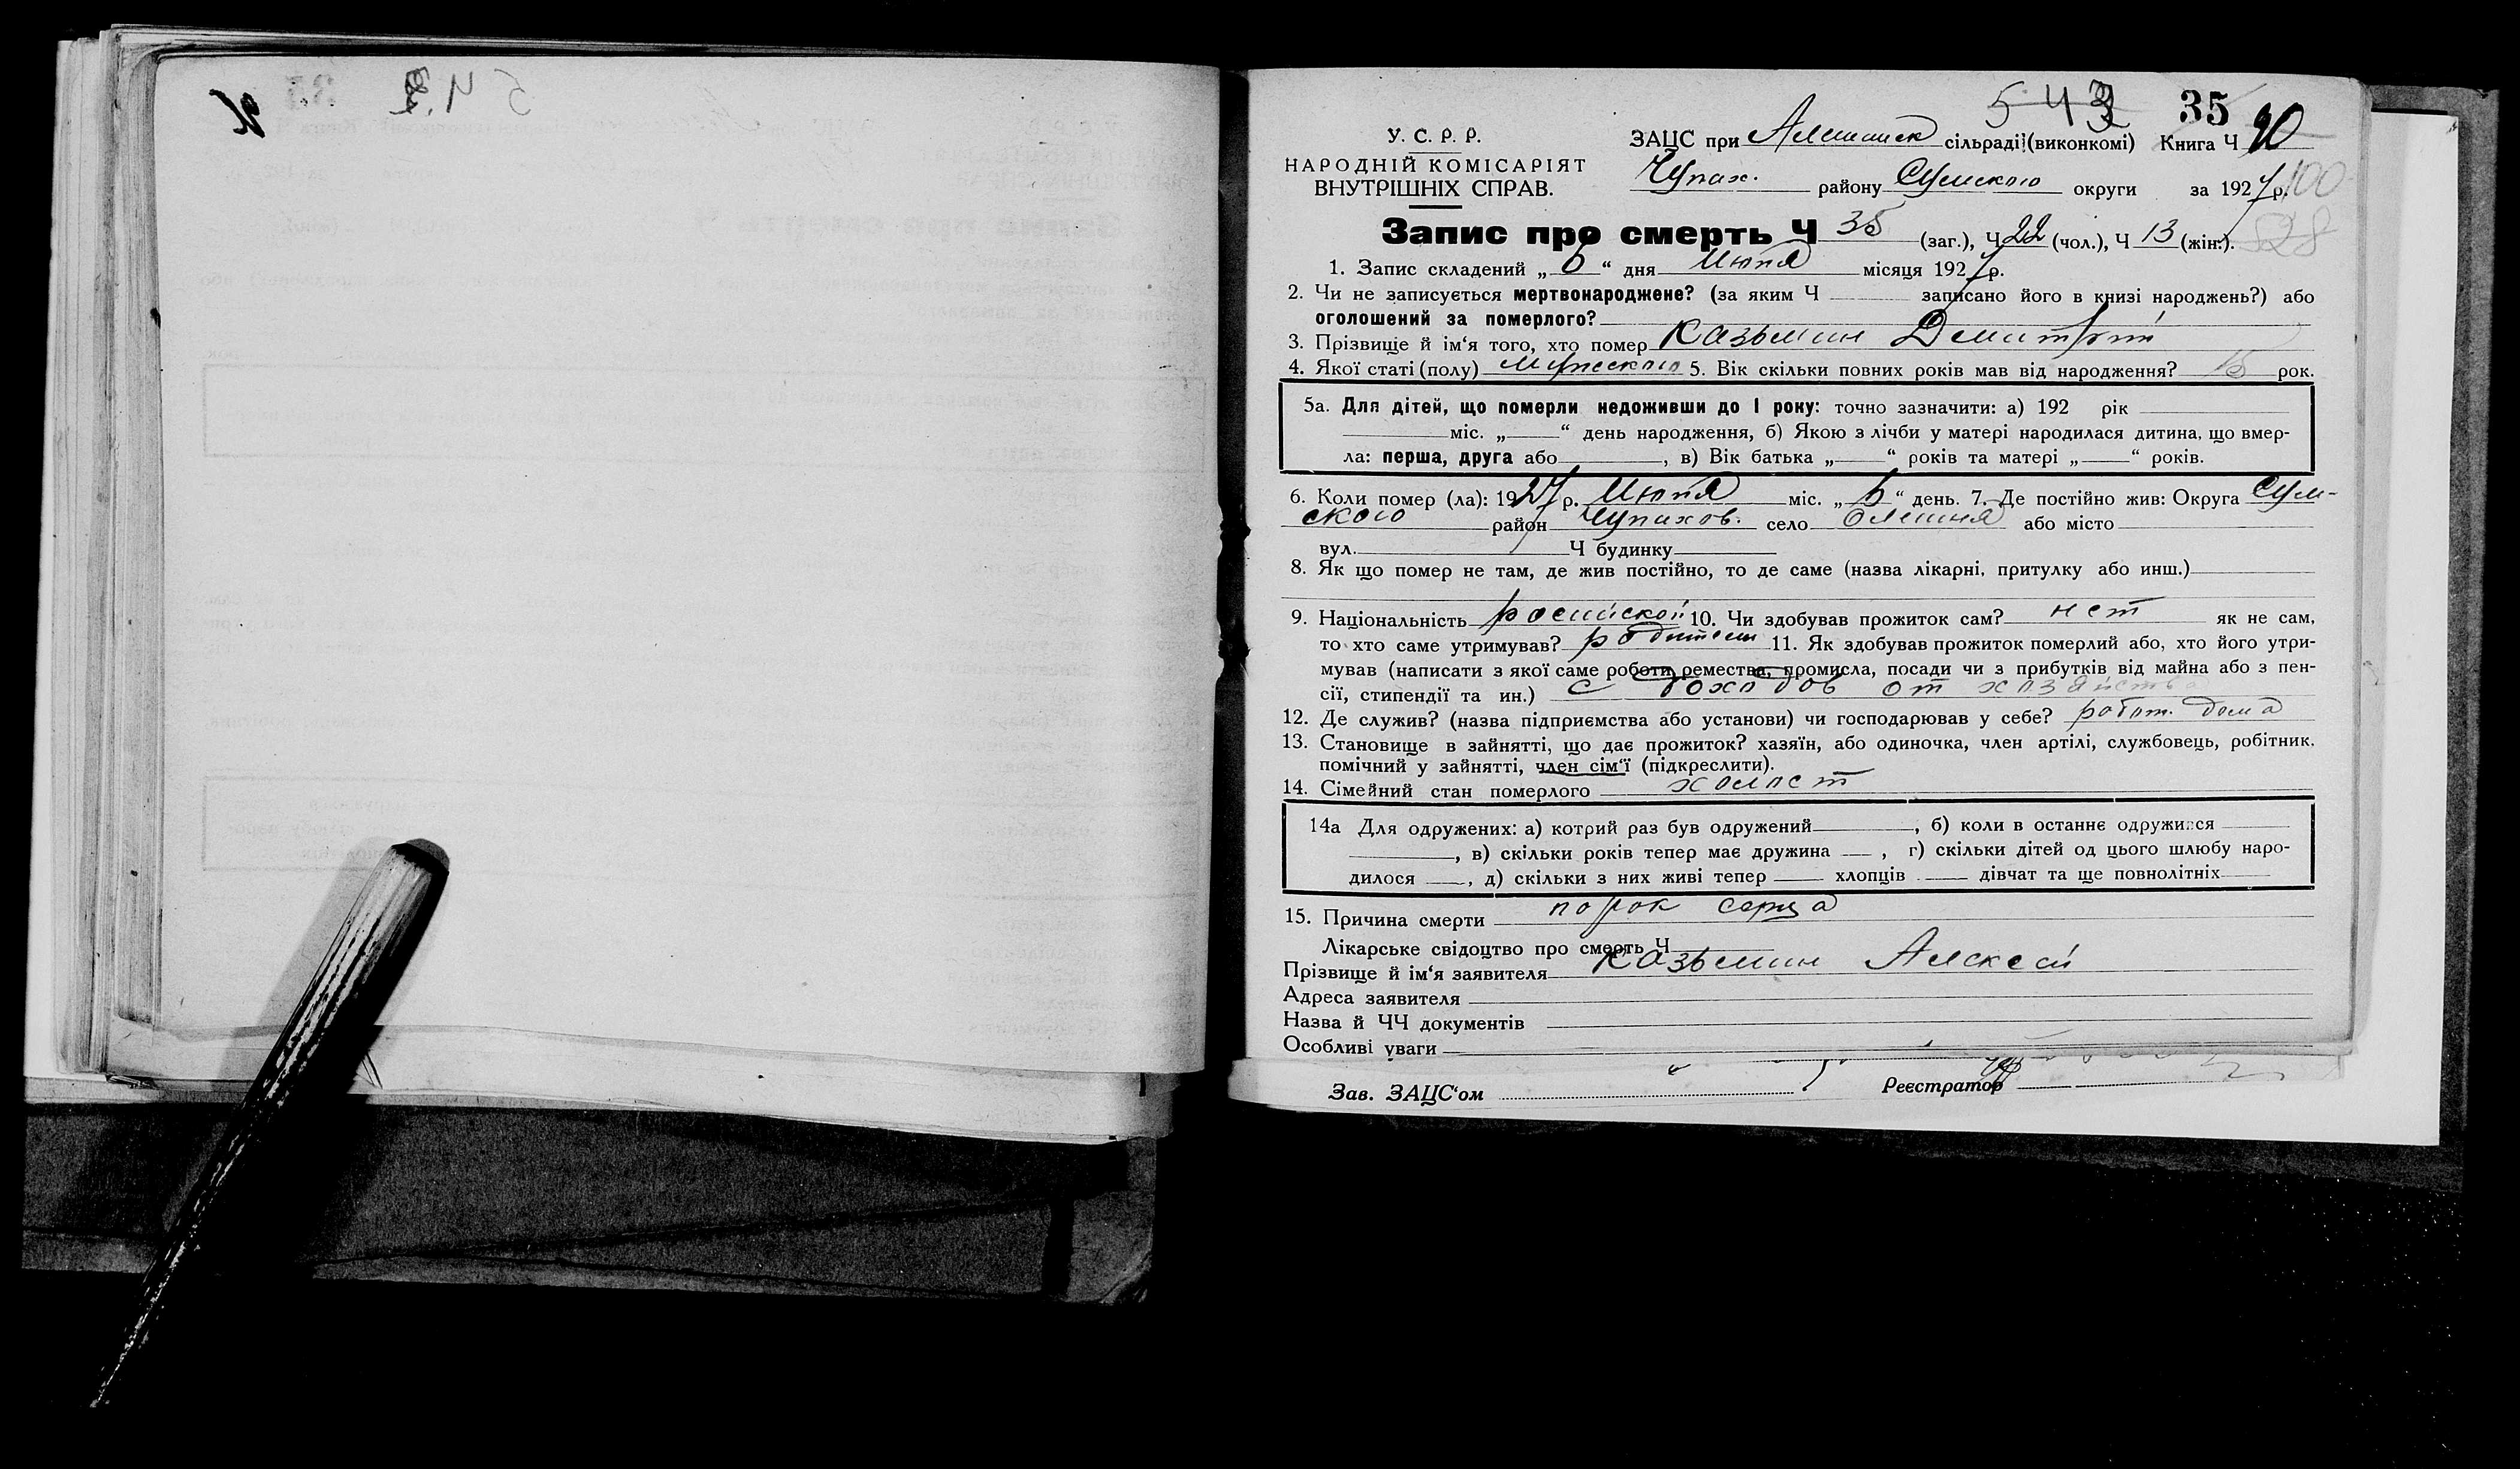 543 35
У. С. Р. Р.
НАРОДНІЙ КОМІСАРІЯТ
ВНУТРІШНІХ СПРАВ.
ЗАЦС при Алешинск сільраді (виконкомі) Книга Ч
Чупах. району Сумского округи за 1927 р. 100
Запис про смерть Ч 35 (заг.), Ч 22 (чол.), Ч 13 (жін.). 528
1. Запис складений „ 6 “ дня Июля місяця 1927 р.
2. Чи не записується мертвонароджене? (за яким Ч записано його в книзі народжень?) або
оголошений за померлого?
3. Прізвище й ім‘я того, хто помер Казьмин Демитрий
4. Якої статі (полу) Мужеского 5. Вік скільки повних років мав від народження? 15 рок.
5а. Для дітей, що померли недоживши до 1 року: точно зазначити: а) 192 рік
міс. „ “ день народження, б) Якою з лічби у матері народилася дитина, що вмер-
ла: перша, друга або , в) Вік батька „ “ років та матері „ “ років.
6. Коли помер (ла): 1927 р. Июля міс. „ 6 “ день. 7. Де постійно жив: Округа Сум-
ского район Чупахов. село Олешня або місто
вул. Ч будинку
8. Як що помер не там, де жив постійно, то де саме (назва лікарні, притулку або инш.)
9. Національність росийской 10. Чи здобував прожиток сам? нет як не сам,
то хто саме утримував? родители 11. Як здобував прожиток померлий або, хто його утри-
мував (написати з якої саме роботи, ремества, промисла, посади чи з прибутків від майна або з пен-
сії, стипендії та ин.) с доходов от хазяйства
12. Де служив? (назва підприємства або установи) чи господарював у себе? работ. дома
13. Становище в зайнятті, що дає прожиток? хазяїн, або одиночка, член артілі, службовець, робітник,
помічний у зайнятті, член сім‘ї (підкреслити).
14. Сімейний стан померлого холост
14а Для одружених: а) котрий раз був одружений , б) коли в останнє одружився
, в) скільки років тепер має дружина , г) скільки дітей од цього шлюбу наро-
дилося , д) скільки з них живі тепер хлопців дівчат та ще повнолітніх
15. Причина смерти порок серца
Лікарське свідоцтво про смерть Ч
Прізвище й ім‘я заявителя Казьмин Алексей
Адреса заявителя
Назва й ЧЧ документів
Особливі уваги
Зав. ЗАЦС‘ом Реєстратор